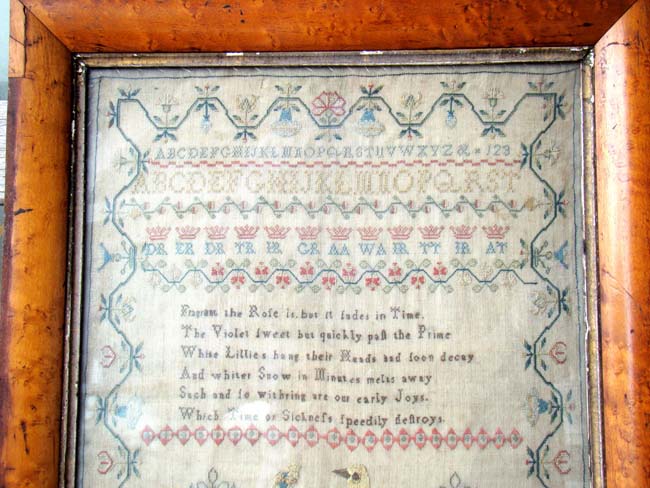 ABCDEFGHIJKLMNOPQRSTUVWXYZ & 123
ABCDEFGHIJKLMNOPQRST
DR ER DR TR HR GR AA WA IR TT IR AT
Fragrant the Rose is, but it fades in Time,
The Violet ſweet but quickly paſt the Prime
White Lillies hang their Heads and ſoon decay
And whiter Snow in Minutes melts away
Such and ſo withring are our early Joys.
Which Time or Sickneſs ſpeedily deſtroys.